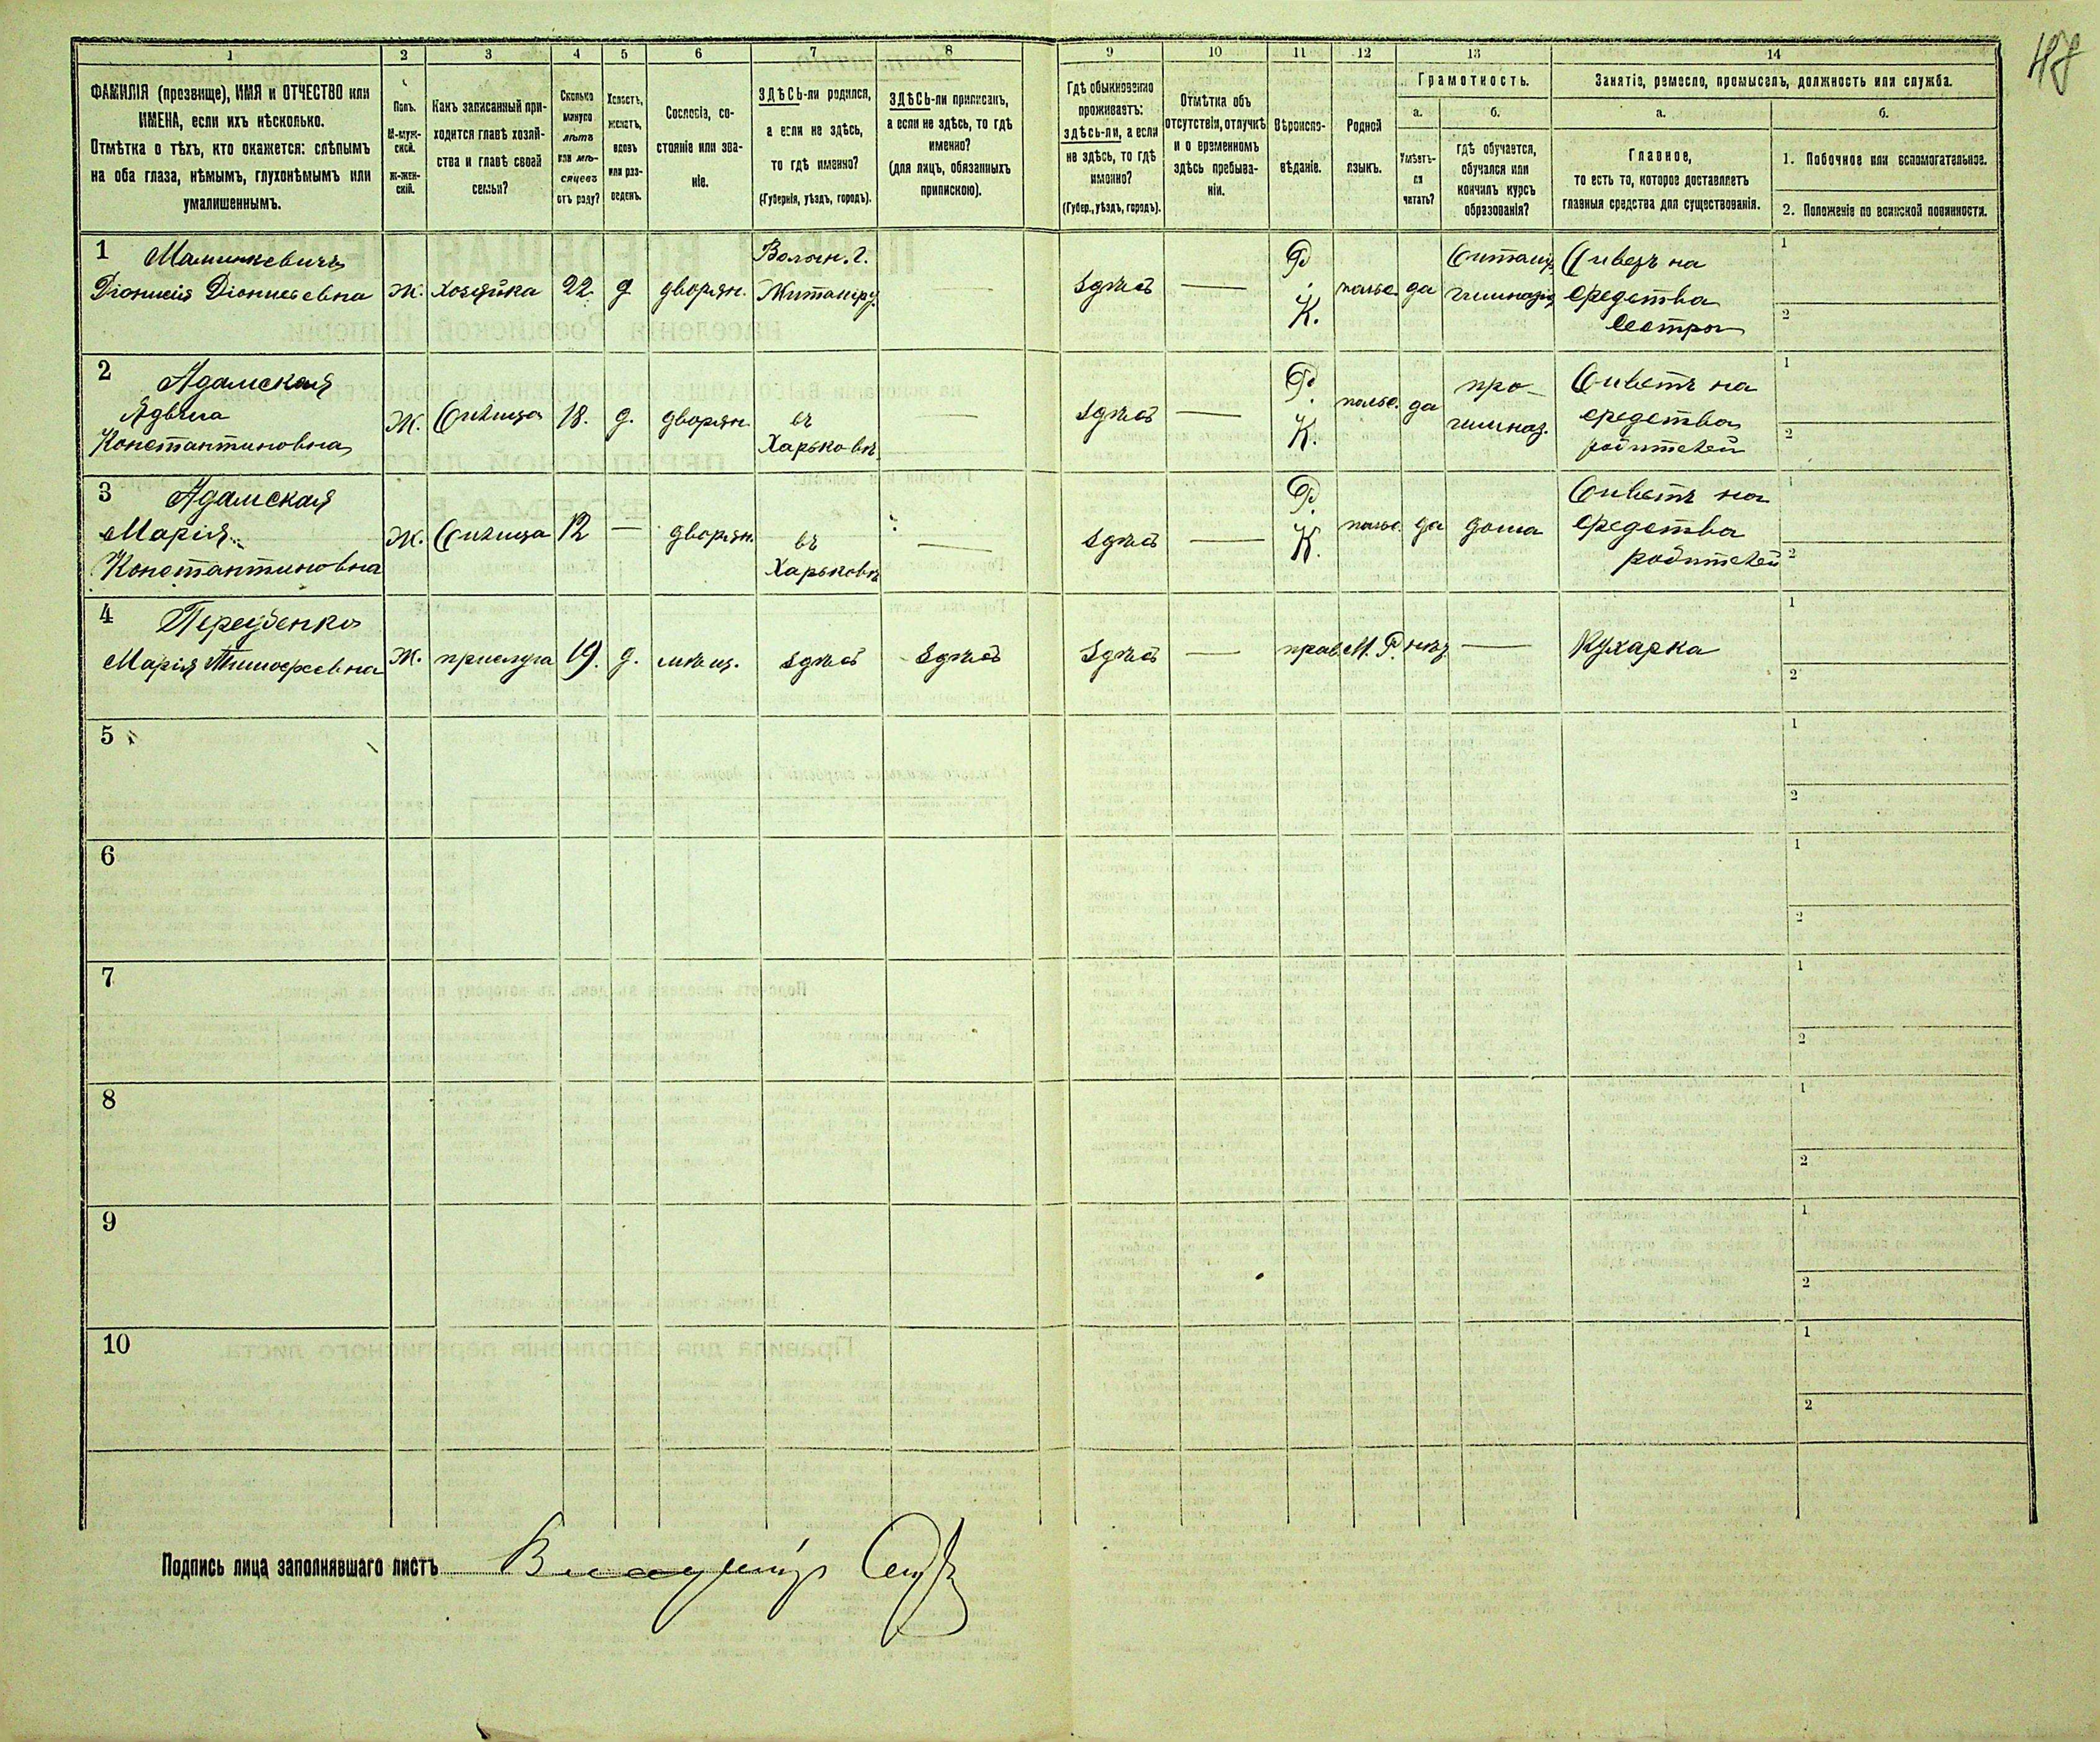 48
1 2 3 4 5 6 7 8 9 10 11 12 13 14
ФАМИЛІЯ (прозвище), ИМЯ и ОТЧЕСТВО или
ИМЕНА, если ихъ нѣсколько.
Отмѣтка о тѣхъ, кто окажется: слѣпымъ
на оба глаза, нѣмымъ, глухонѣмымъ или
умалишеннымъ.
Полъ.
М-муж-
ской.
Ж-жен-
скій.
Какъ записанный при-
ходится главѣ хозяй-
ства и главѣ своей
семьи?
Сколько
минуло
лѣтъ
или мѣ-
сяцевъ
отъ роду?
Холостъ,
женатъ,
вдовъ
или раз-
веденъ.
Сословіе, со-
стояніе или зва-
ніе.
ЗДѢСЬ-ли родился,
а если не здѣсь,
то гдѣ именно?
(Губернія, уѣздъ, городъ).
ЗДѢСЬ-ли приписанъ,
а если не здѣсь, то гдѣ
именно?
(для лицъ, обязанныхъ
припискою).
Гдѣ обыкновенно
проживаетъ:
здѣсь-ли, а если
не здѣсь, то гдѣ
именно?
(Губер., уѣздъ, городъ).
Отмѣтка объ
отсутствіи, отлучкѣ
и о временномъ
здѣсь пребыва-
ніи.
Вѣроиспо-
вѣданіе.
Родной
языкъ.
Грамотность.
а.
Умѣетъ-
ли
читать?
б.
гдѣ обучается,
обучался или
кончилъ курсъ
образованія?
Занятіе, ремесло, промыселъ, должность или служба.
а.
Главное,
то есть то, которое доставляетъ
главныя средства для существованія.
б.
1. Побочное или вспомогательное.
2. Положеніе по воинской повинности.
1
Діонисія Діонисіевна
Ж. хозяйка 22 д дворян.
Волын. г.
Житаміру.
здѣсь
Р.
К.
польс. да
гимназія
на
средства
сестры
1
2
2 Адамская
Ядвига
Константиновна
Ж. 18. д. дворян.
въ
Харьковѣ
здѣсь
Р.
К.
польс. да
про-
гимназ.
на
средства
родителей
1
2
3 Адамская
Марія
Константиновна
Ж. 12 — дворян.
въ
Харьковѣ
здѣсь
Р.
К.
польс. да дома
на
средства
родителей
1
2
4
Марія Тимофеевна
Ж. прислуга 19. д. мѣщ. здѣсь здѣсь здѣсь — прав. М. Р. — Кухарка
1
2
5
1
2
6
1
2
7
1
2
8
1
2
9
1
2
10
1
2
Подпись лица заполнявшаго листъ Владиміръ